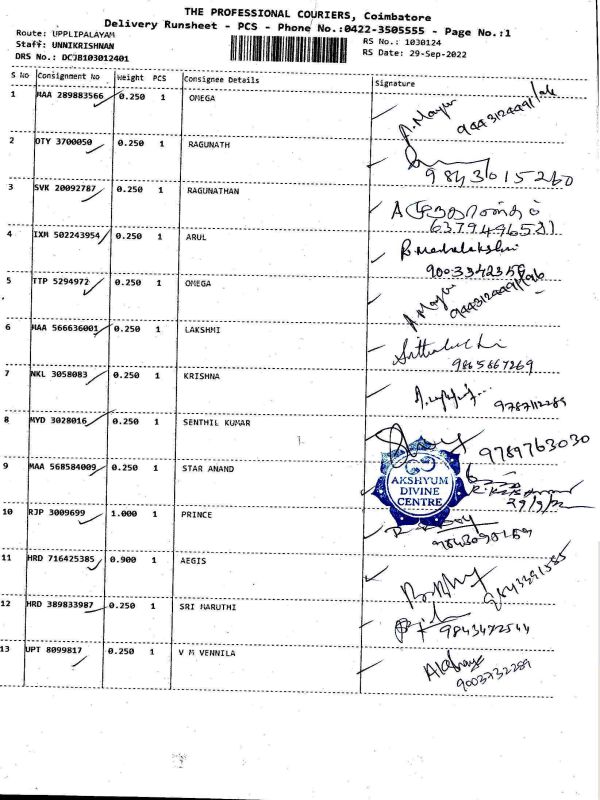 THE PROFESSIONAL COURIERS, Coimbatore
Delivery Runsheet - PCS - Phone No.:0422-3505555 - Page No.:1
Route: UPPLIPALAYAM
Staff: UNNIKRISHNAN
DRS No.: DCJB103012401
RS No.: 1030124
RS Date: 29-Sep-2022
S No Consignment No Weight PCS Consignee Details Signature
1 MAA 289883566 0.250 1 OMEGA
2 OTY 3700050 0.250 1 RAGUNATH
9843015260
3 SVK 20092787 0.250 1 RAGUNATHAN
4 IXM 502243954 0.250 1 ARUL
9003342356
5 TTP 5294972 0.250 1 OMEGA
6 MAA 566636001 0.250 1 LAKSHMI
9865667269
7 NKL 3058083 0.250 1 KRISHNA
8 MYD 3028016 0.250 1 SENTHIL KUMAR
9789763030
9 MAA 568584009 0.250 1 STAR ANAND
AKSHYUM
DIVINE
CENTRE
29/9/22
10 RJP 3009699 1.000 1 PRINCE
11 HRD 716425385 0.900 1 AEGIS
12 HRD 389833987 0.250 1 SRI MARUTHI
9843472544
13 UPT 8099817 0.250 1 V M VENNILA
9003732289